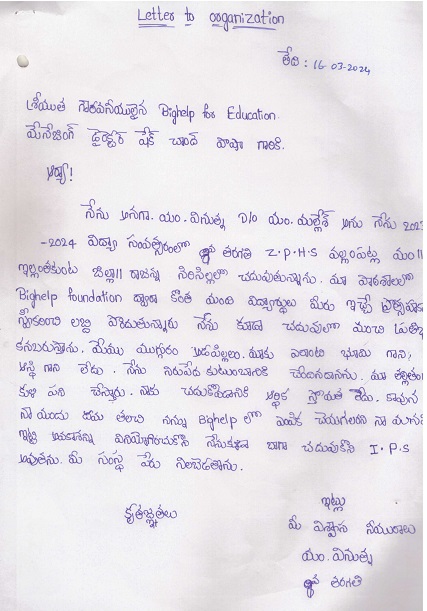 Letter to organization
తేది : 16-03-2024
శ్రీయుత గౌరవనీయులైన Bighelp for Education.
మేనేజింగ్ డైరెక్టర్ షేక్ చాంద్ పాషా గారికి.
ఆర్యా!
నేను అనగా. యం. వినుత్న D/o యం. మల్లేశ్ అను నేను 2023
-2024 విద్యా సంవత్సరంలో తరగతి Z.P.H.S వల్లంపట్ల మం॥
ఇల్లంతకుంట జిల్లా॥ రాజన్న సిరిసిల్లలో చదువుతున్నాను. మా పాఠశాలలో
Bighelp foundation ద్వారా కొంత మంది విద్యార్థులు మీరు ఇచ్చే
స్వీకరించి లబ్ది పొందుతున్నారు నేను కూడా చదువులో మంచి
కనబరుస్తాను. మేము ముగ్గురం ఆడపిల్లలం. మాకు ఎలాంటి భూమి గాని,
ఆస్థి గాని లేదు. నేను నిరుపేద కుటుంబానికి చెందినదానను. మా
కూలి పని చేస్తారు. నాకు చదుకోవడానికి ఆర్థిక స్తోమత లేదు. కావున
నా యందు దయ తలచి నన్ను Bighelp లో ఎంపిక చేయగలరని నా
ఇట్టి అవకాశాన్ని వినియోగించుకొని నేనుకూడా బాగా చదువుకొని I.P.S
అవుతాను. మీ సంస్థ పేరు నిలబెడతాను.
కృతజ్ఞతలు
ఇట్లు
మీ విశ్వాస
యం. వినుత్న
తరగతి